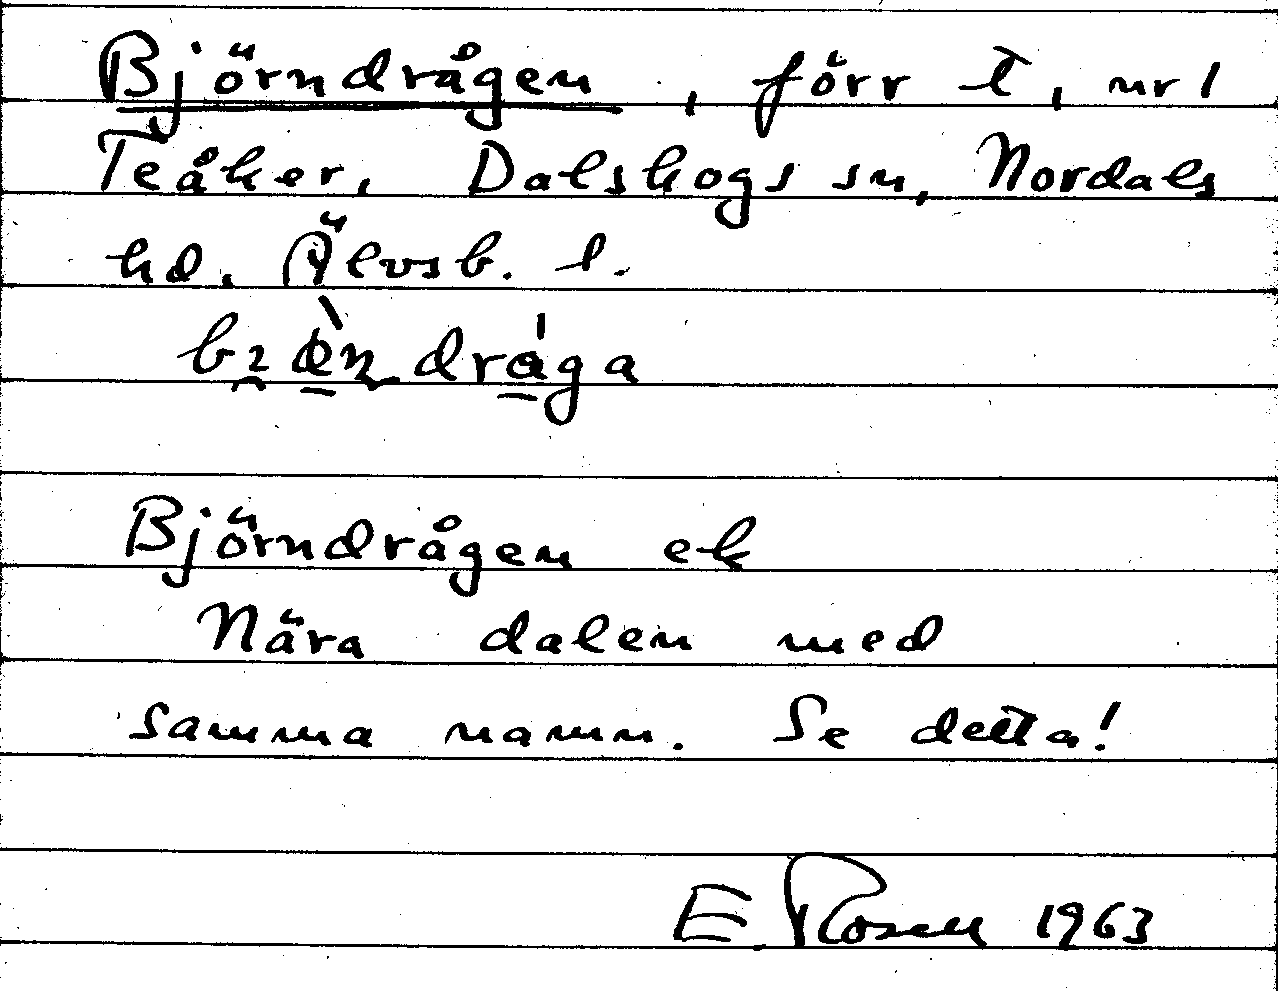 Björndrågen, förr t, nr 1
Teåker, Dalskogs sn, Nordals
hd. Älvsb. l.
Björndrågen ek
Nära dalen med
samma namn. Se detta!
E. Rosell 1963